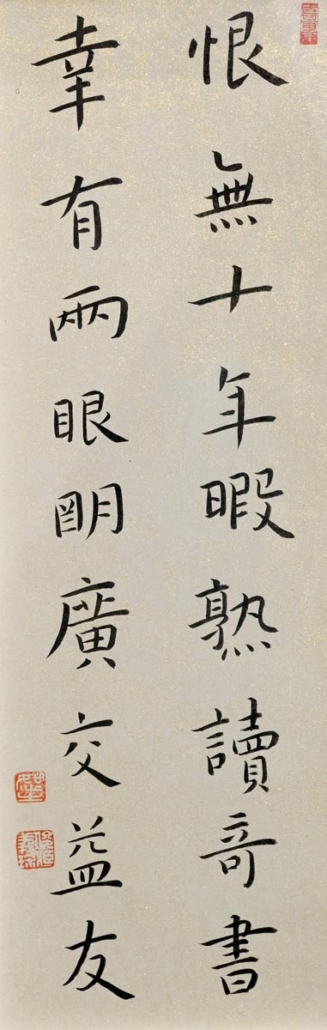 恨無十年暇熟讀奇書
幸有兩眼明廣交益友